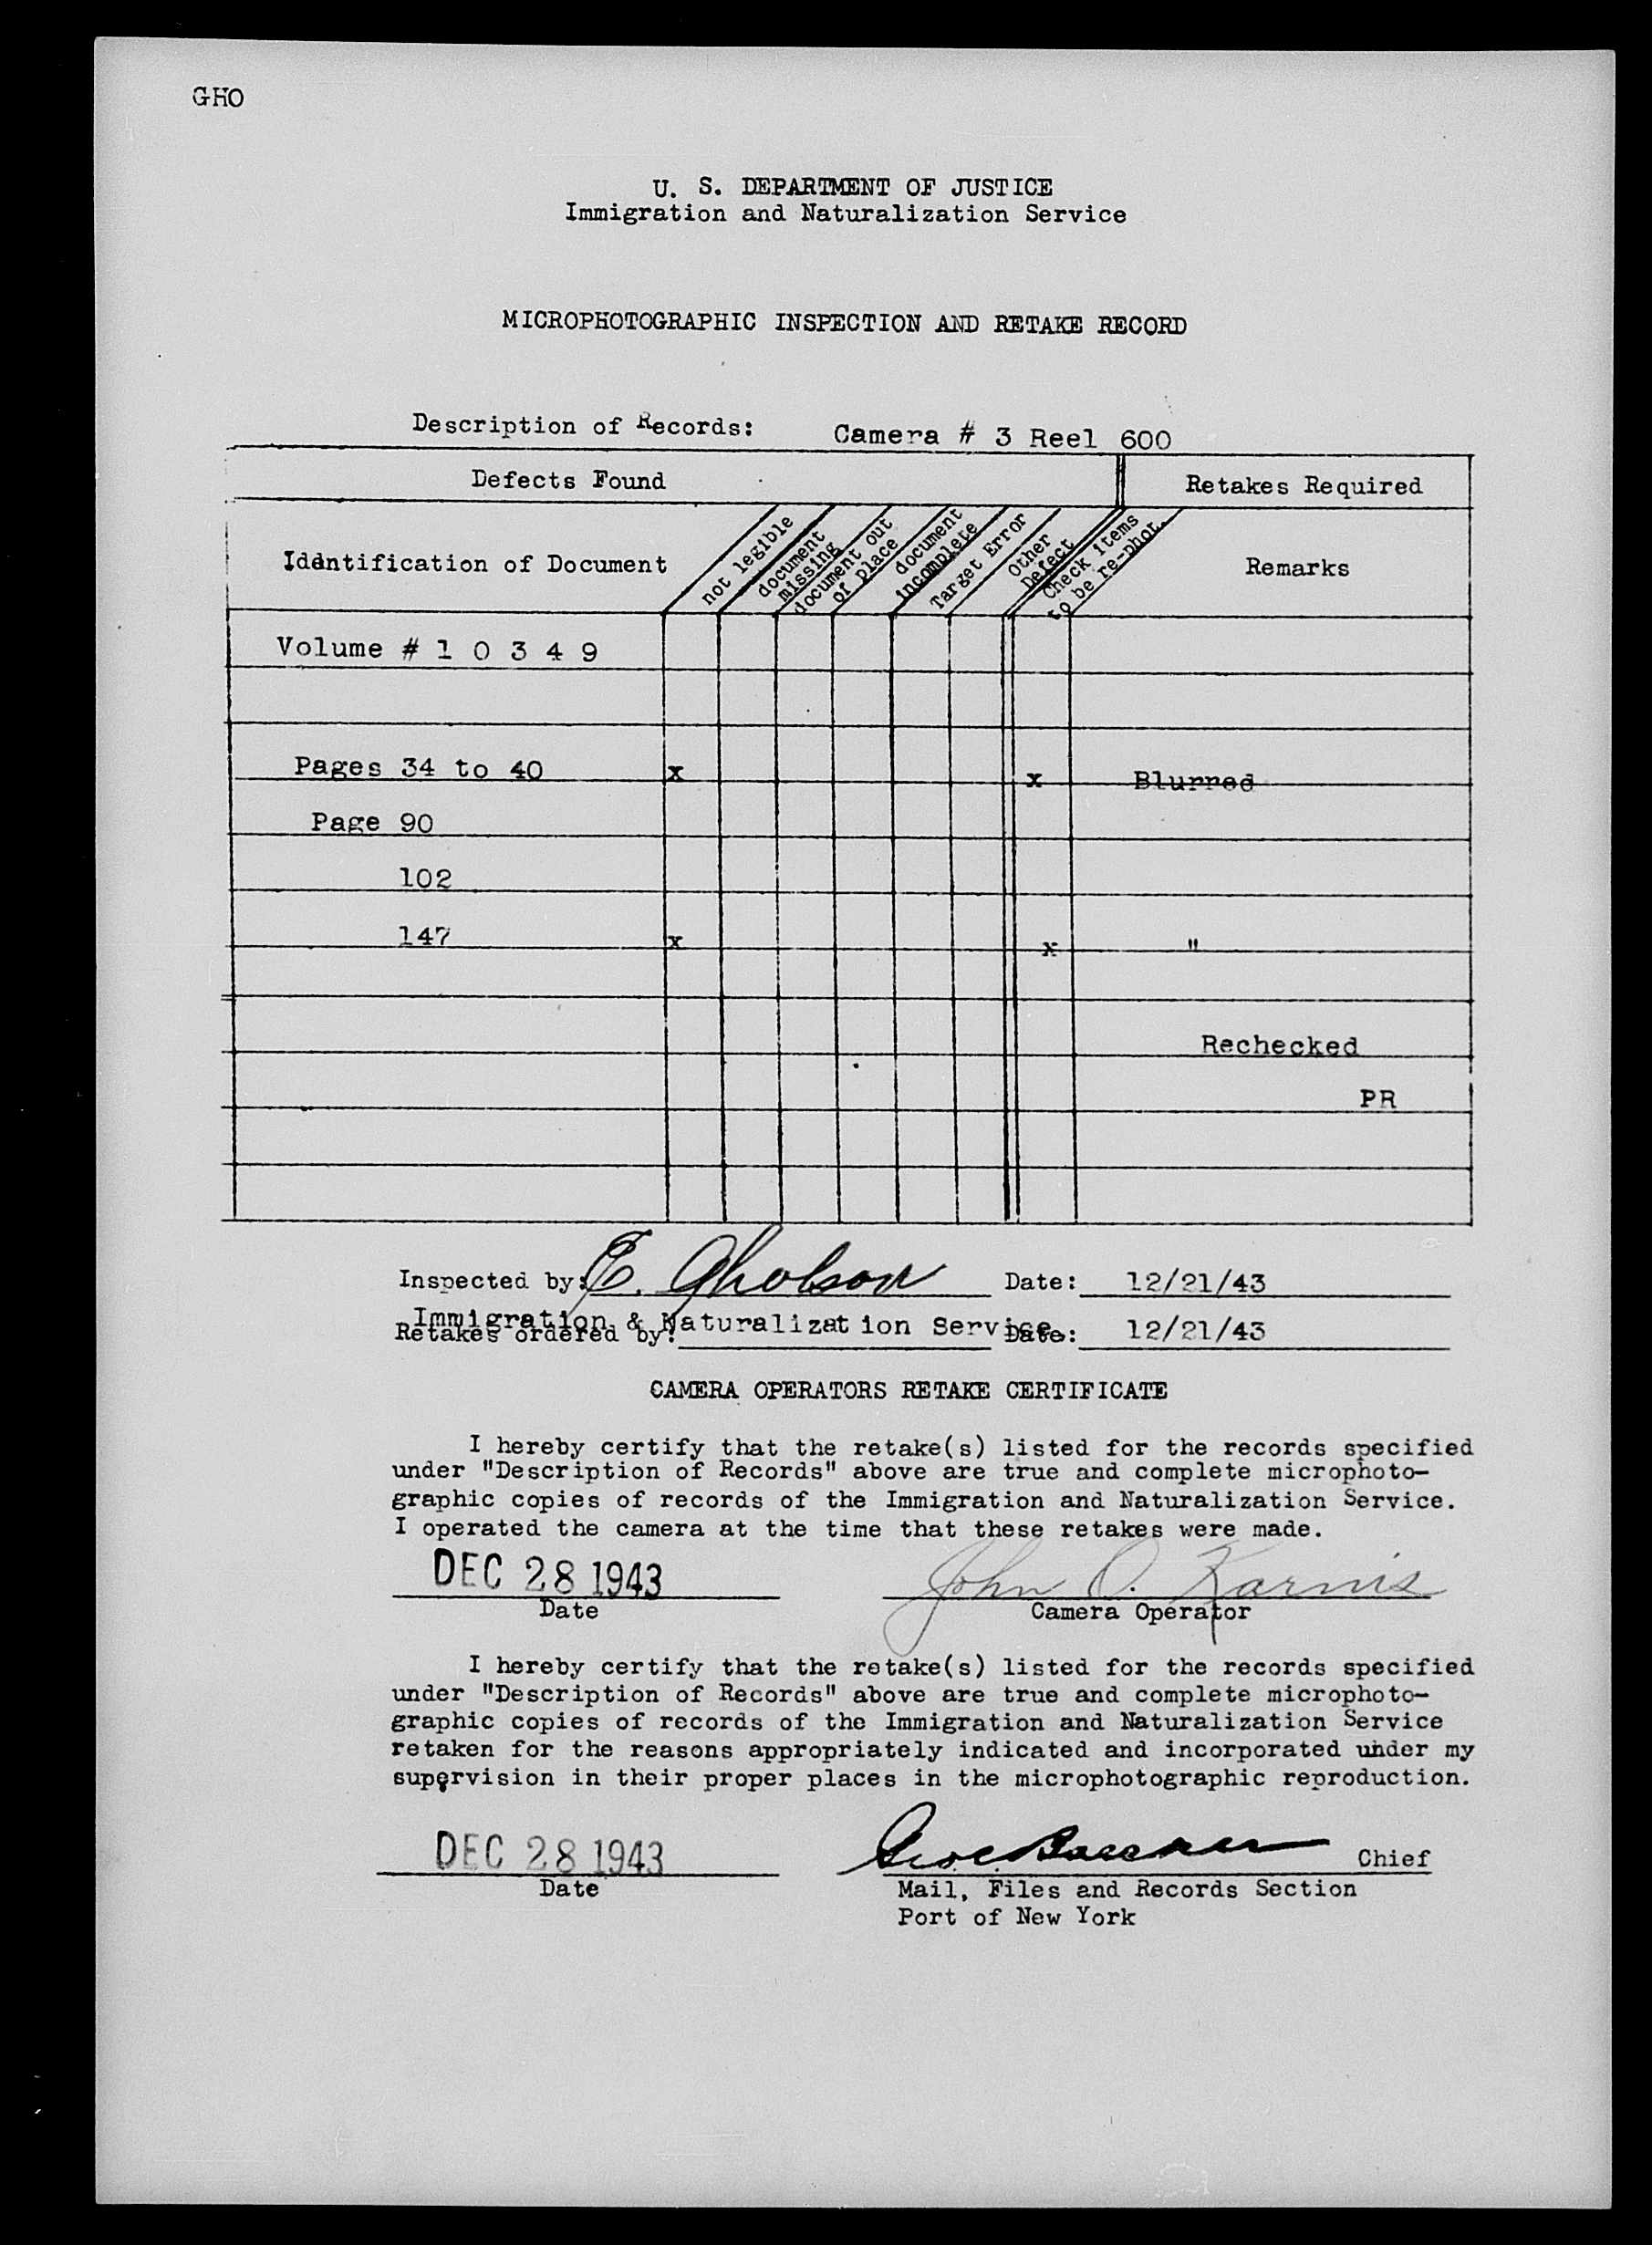 GHO
U. S. DEPARTMENT OF JUSTICE
Immigration and Naturalization Service
MICROPHOTOGRAPHIC INSPECTION AND RETAKE RECORD
Description of Records: Camera # 3 Reel 600
Defects Found Retakes Required
Iddntification of Document not legible document missing document out of place document incomplete Target Error Other Defect Check items to be re-phot. Remarks
Volume # 1 0 3 4 9
Pages 34 to 40 x x Blurred
Page 90
102
147 x x "
Rechecked
PR
Inspected by: E. Gholson Date: 12/21/43
Immigration & Naturalization Service
Retakes ordered by: Date: 12/21/43
CAMERA OPERATORS RETAKE CERTIFICATE
I hereby certify that the retake(s) listed for the records specified
under "Description of Records" above are true and complete microphoto-
graphic copies of records of the Immigration and Naturalization Service.
I operated the camera at the time that these retakes were made.
DEC 28 1943 John O. Karnis
Date Camera Operator
I hereby certify that the retake(s) listed for the records specified
under "Description of Records" above are true and complete microphoto-
graphic copies of records of the Immigration and Naturalization Service
retaken for the reasons appropriately indicated and incorporated under my
supervision in their proper places in the microphotographic reproduction.
DEC 28 1943 Chief
Date Mail, Files and Records Section
Port of New York